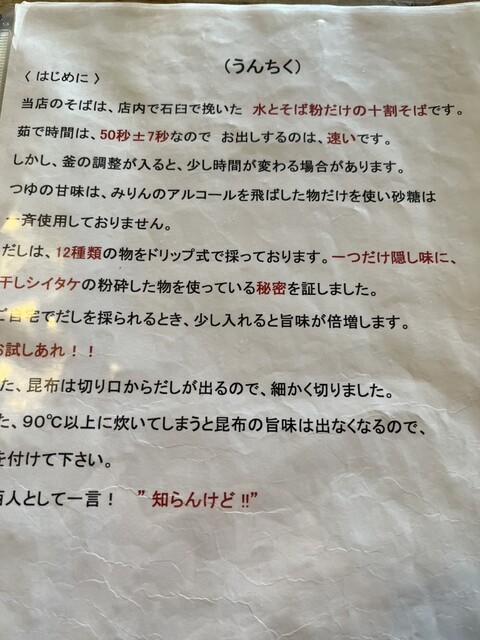 （うんちく）
〈 はじめに 〉
当店のそばは、店内で石臼で挽いた 水とそば粉だけの十割そばです。
茹で時間は、50秒±7秒なので お出しするのは、速いです。
しかし、釜の調整が入ると、少し時間が変わる場合があります。
つゆの甘味は、みりんのアルコールを飛ばした物だけを使い砂糖は
一斉使用しておりません。
だしは、12種類の物をドリップ式で採っております。一つだけ隠し味に、
干しシイタケの粉砕した物を使っている秘密を証しました。
ご自宅でだしを採られるとき、少し入れると旨味が倍増します。
お試しあれ！！
た、昆布は切り口からだしが出るので、細かく切りました。
た、90℃以上に炊いてしまうと昆布の旨味は出なくなるので、
を付けて下さい。
人として一言！ ”知らんけど!!”